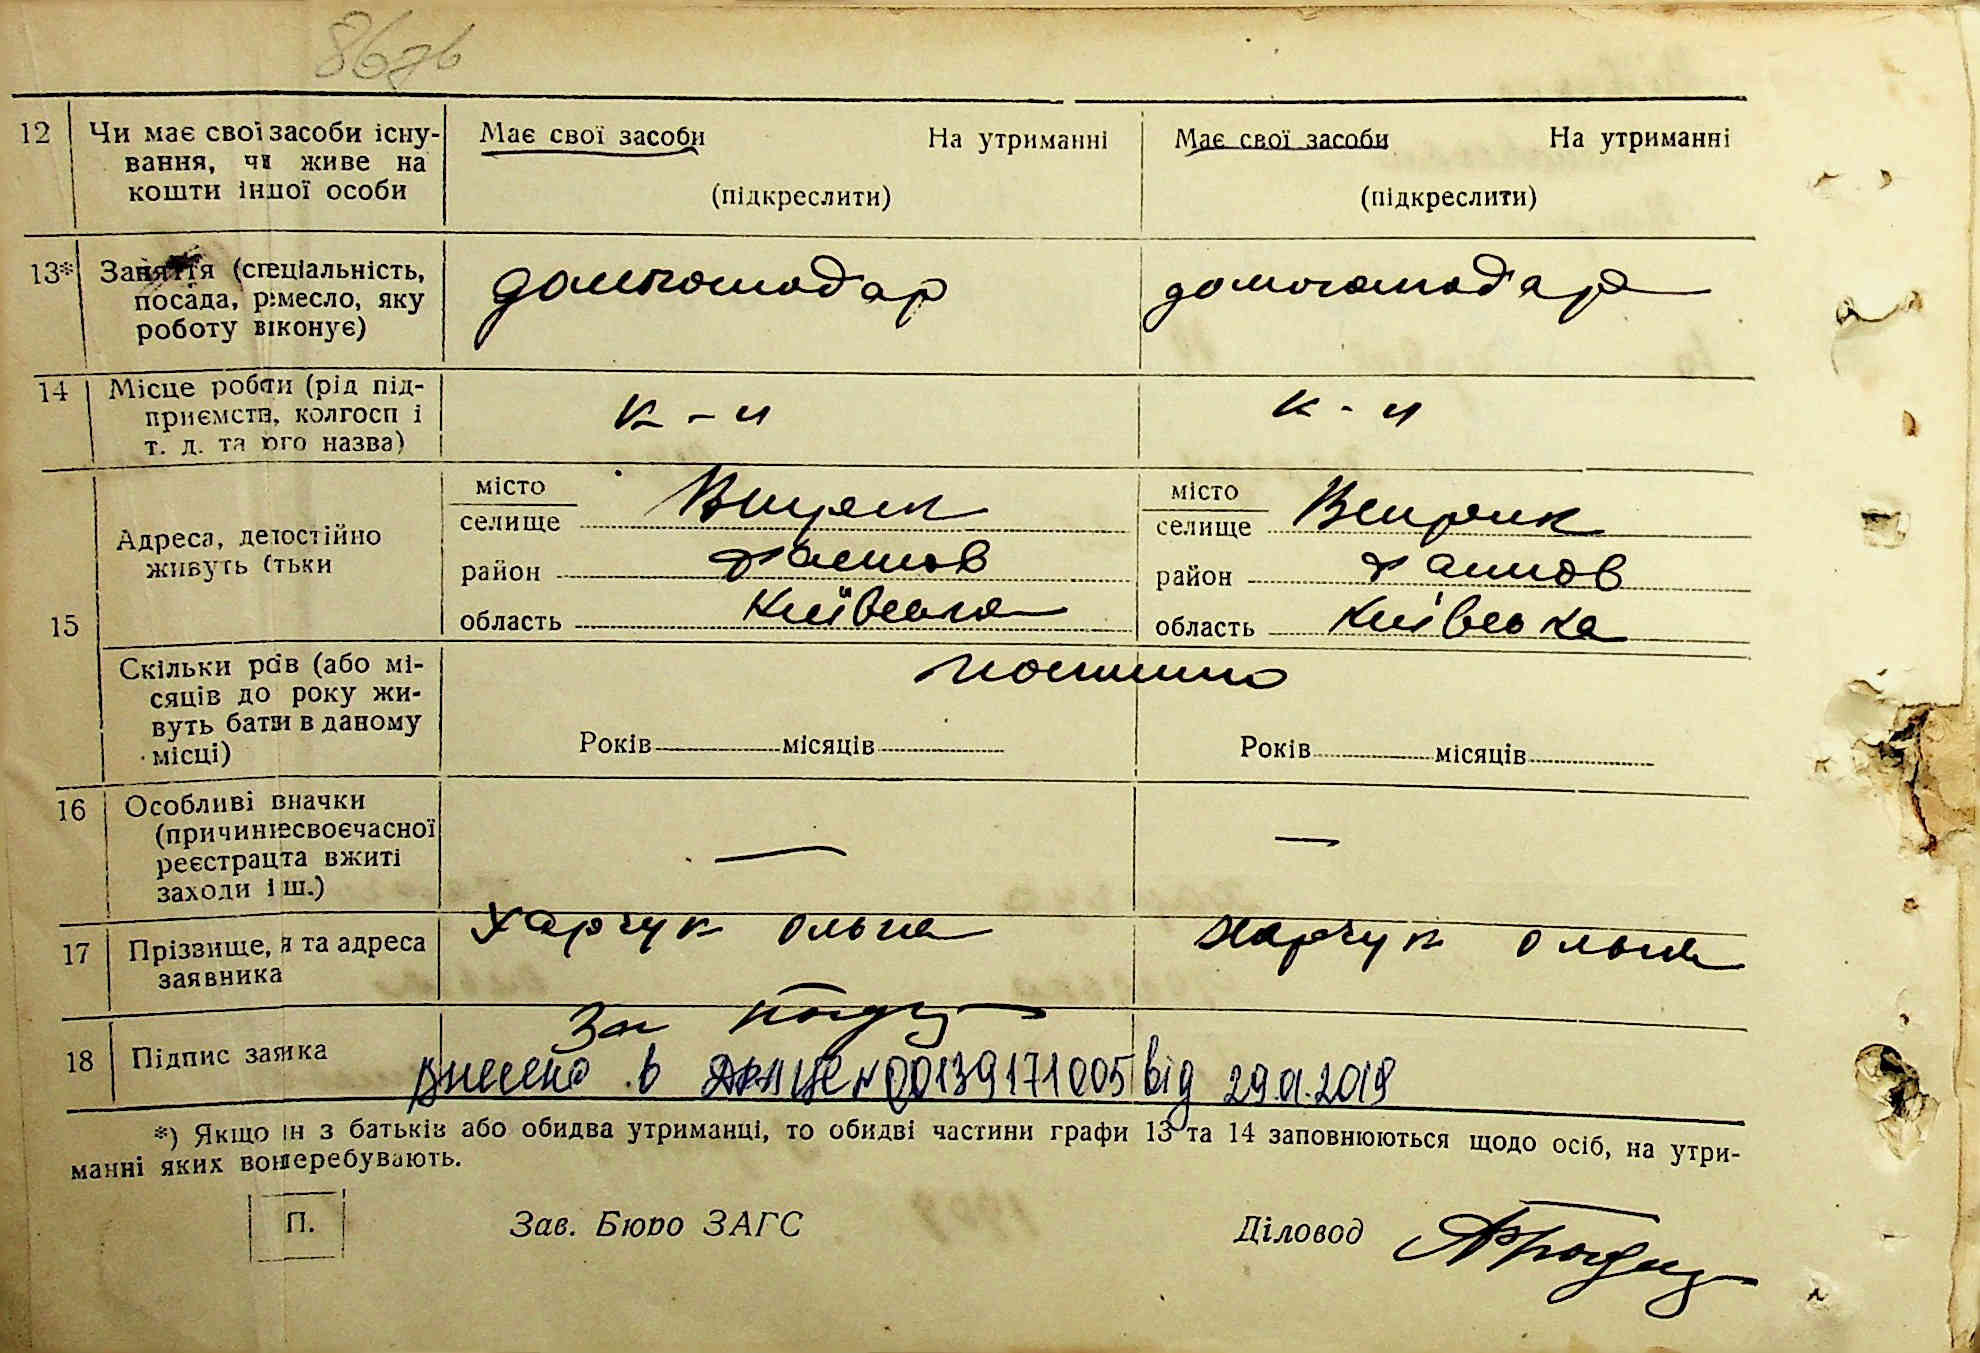 12 Чи має свої засоби існу- Має свої засоби На утриманні Має свої засоби На утриманні
вання, чи живе на
кошти іншої особи (підкреслити) (підкреслити)
13* Заняття (спеціальність, домогосподар домогосподарка
посада, ремесло, яку
роботу виконує)
14 Місце роботи (рід під- к-ч к-ч
приємств, колгосп і
т. д. та його назва)
15 Адреса, де постійно місто
живуть батьки селище Веприк
район Фастов
область Київська
місто
селище Веприк
район Фастов
область Київська
Скільки років (або мі- постійно
сяців до року жи-
вуть батьки в даному Років місяців Років місяців
місці)
16 Особливі значки — —
(причини несвоєчасної
реєстрації та вжиті
заходи і інш.)
17 Прізвище, та адреса Харчук Ольга Харчук Ольга
заявника
18 Підпис заявника За
внесено в ДРАЦС № 00139171005 від 29.01.2019
*) Якщо з батьків або обидва утриманці, то обидві частини графи 13 та 14 заповнюються щодо осіб, на утри-
манні яких вони перебувають.
П. Зав. Бюро ЗАГС Діловод